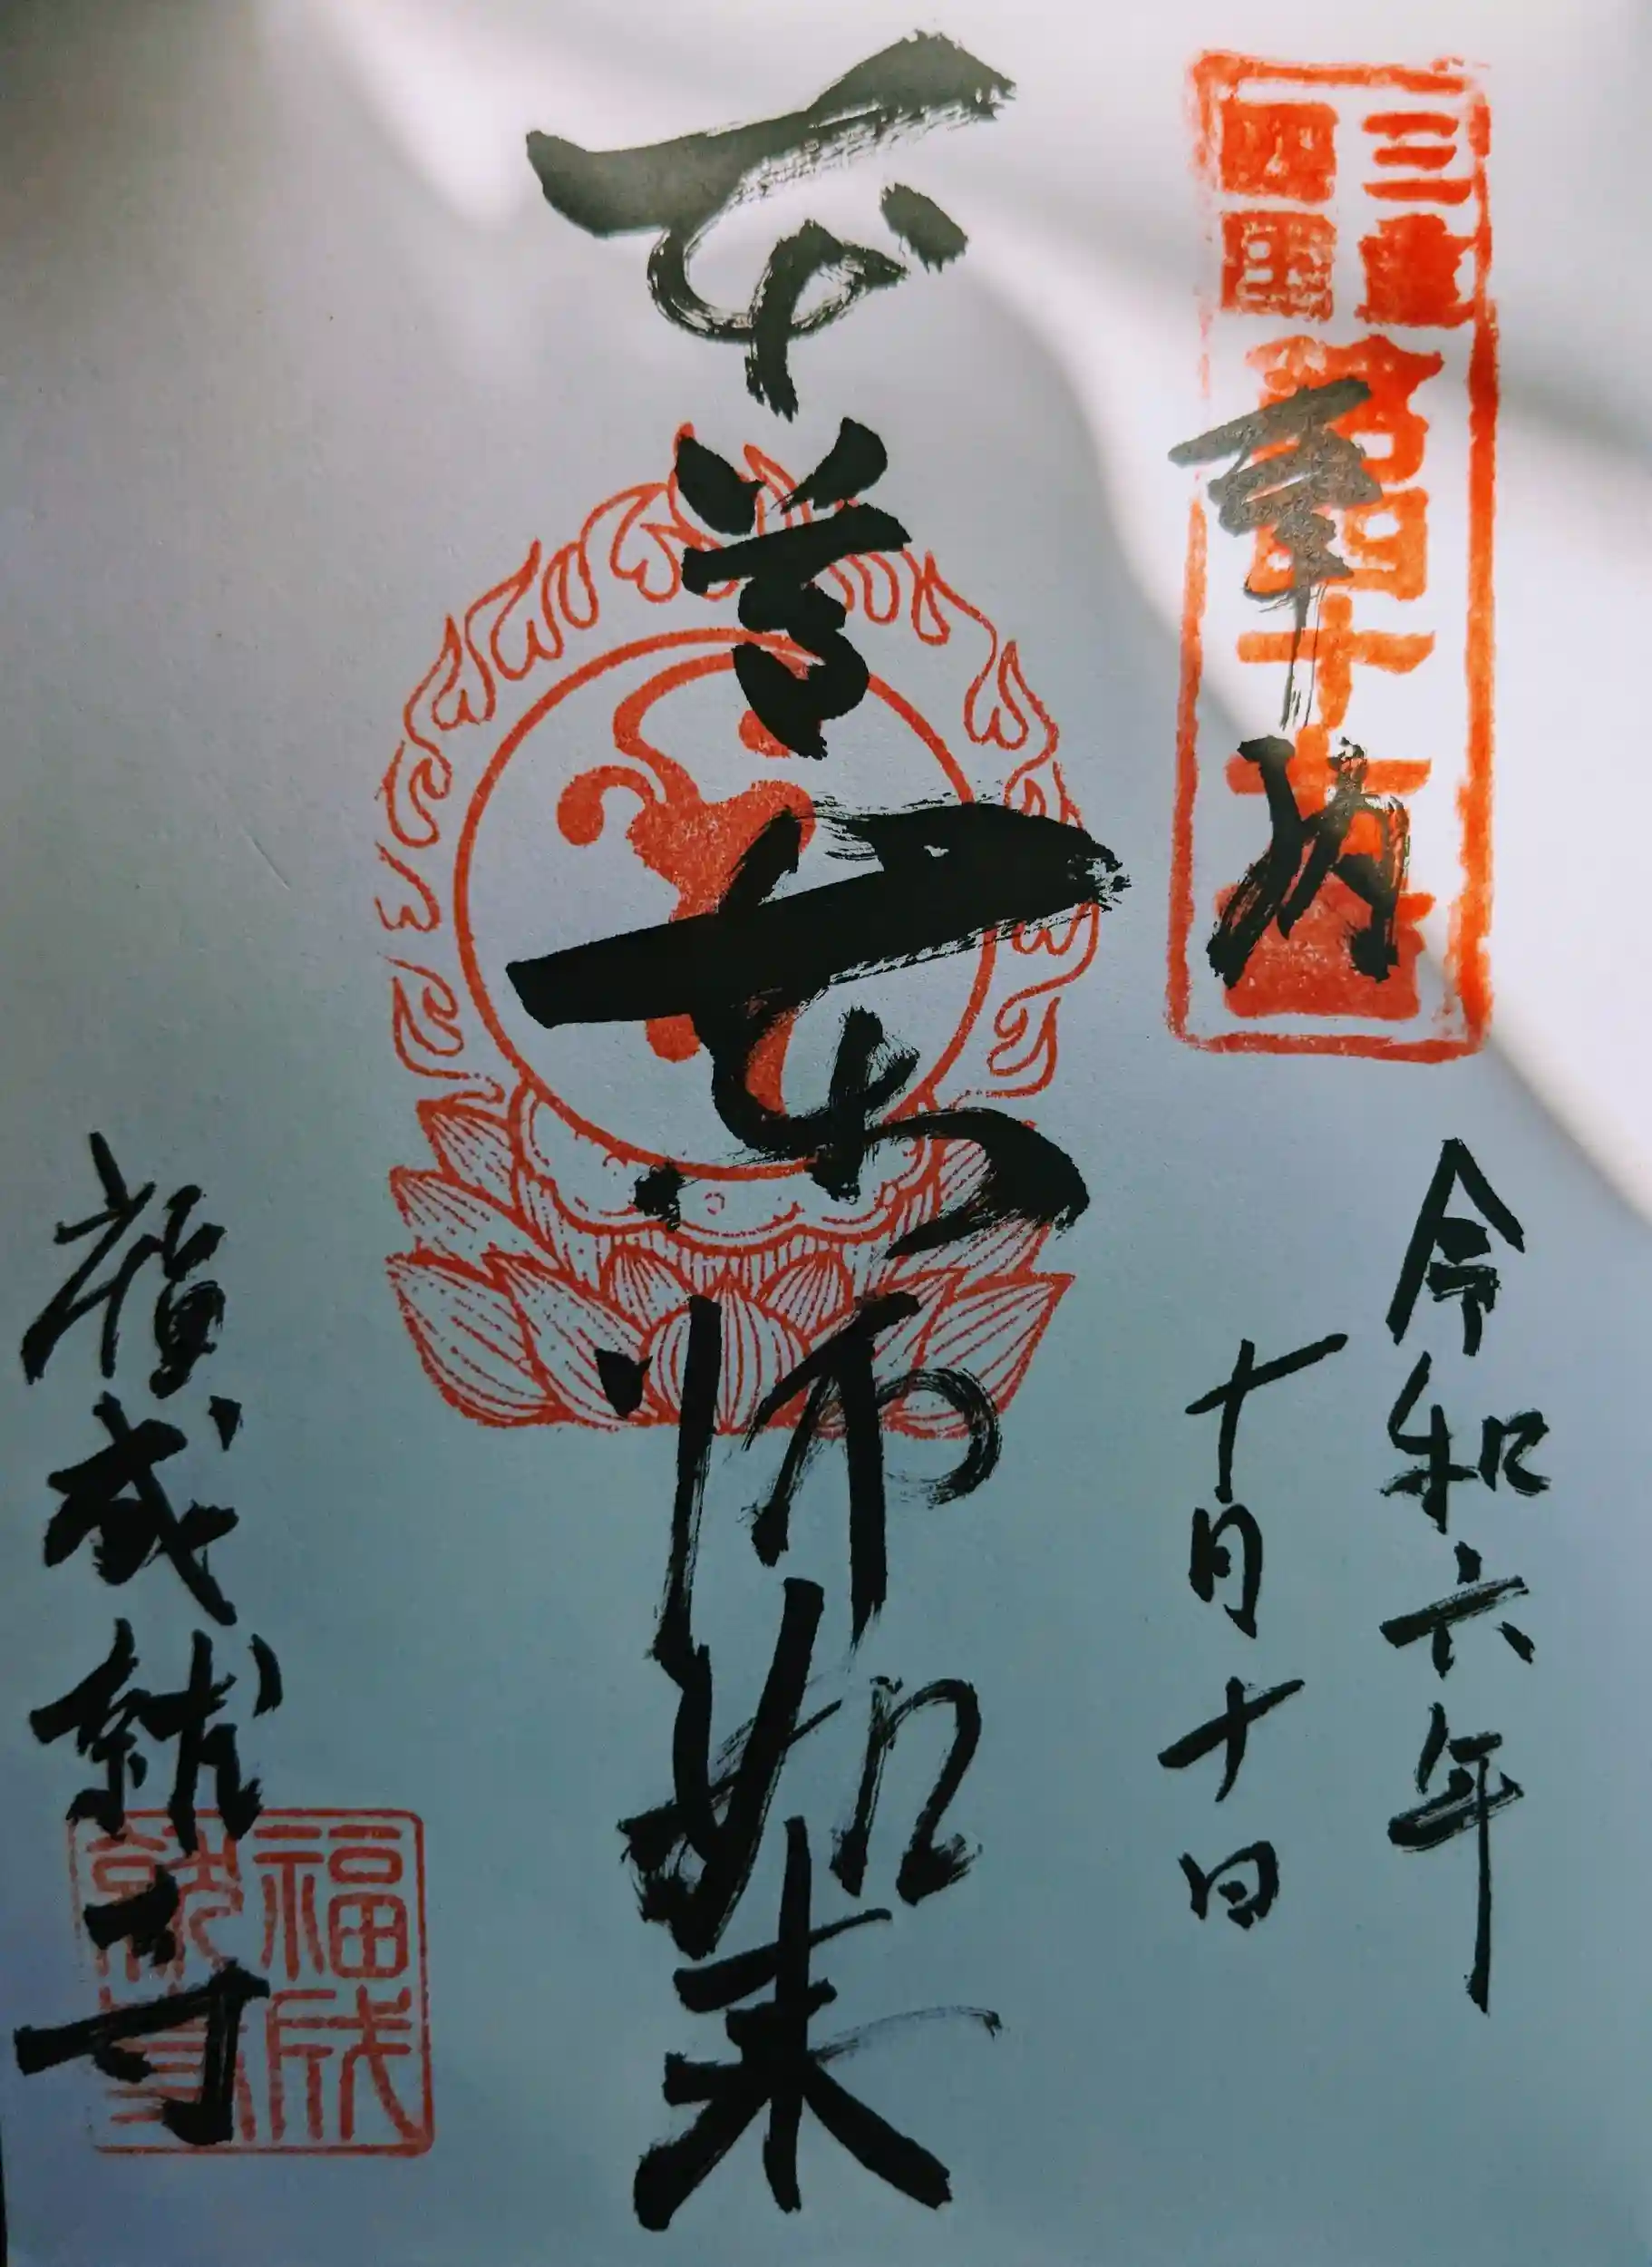 三重
四国
奉拝
令和六年
十月十日
本尊薬師如来
福成就寺
福成
就寺